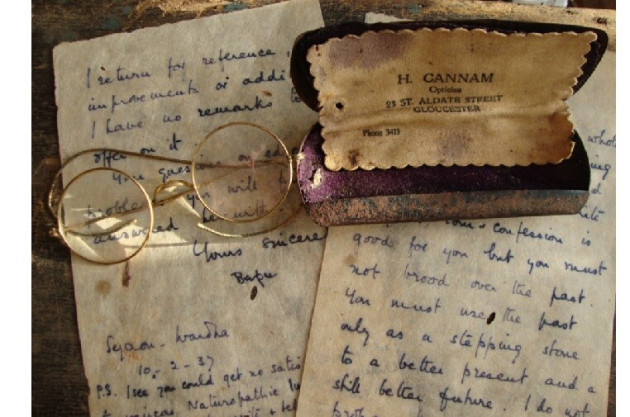 I return for reference,
improvements or addi
I have no remarks to
offer on it
Your questions on ed
proble You will
answered
Yours sincere
Bapu
Segaon-Wardha
10-2-37
P.S. I see you could get no satis
Naturopathic
H. CANNAM
Optician
23 ST. ALDATE STREET
GLOUCESTER
Phone 3413
whole
ing
d
ite
confession is
good for you but you must
not brood over the past.
You must use the past
only as a stepping stone
to a better present and a
still better future. I do not